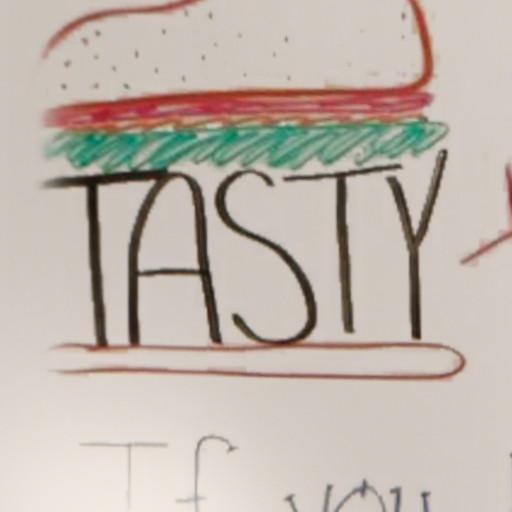 TASTY
If you